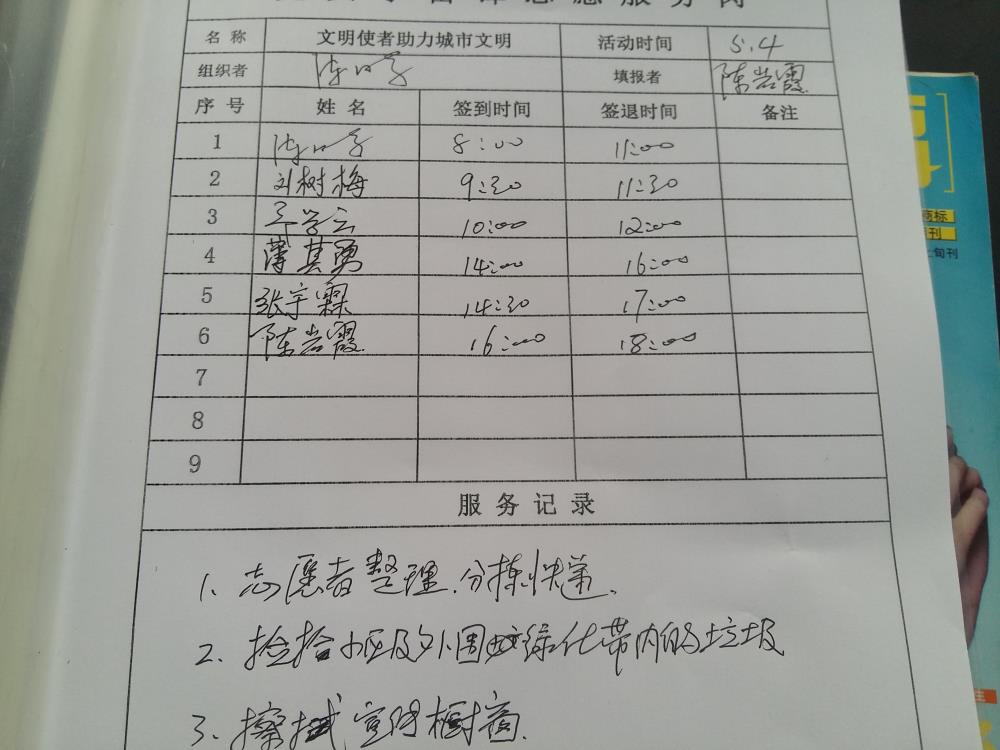 志愿服务岗
名 称 文明使者助力城市文明 活动时间 5.4
组织者 填报者 陈岩霞
序 号 姓 名 签到时间 签退时间 备注
1 8:00 11:00
2 刘树梅 9:30 11:30
3 10:00 12:00
4 薄其勇 14:00 16:00
5 张宇霖 14:30 17:00
6 陈岩霞 16:00 18:00
7
8
9
服 务 记 录
1、志愿者整理.分拣快递.
2、捡拾小区及外围绿化带内的垃圾
3、擦拭宣传橱窗.
商标
旬刊
上旬刊